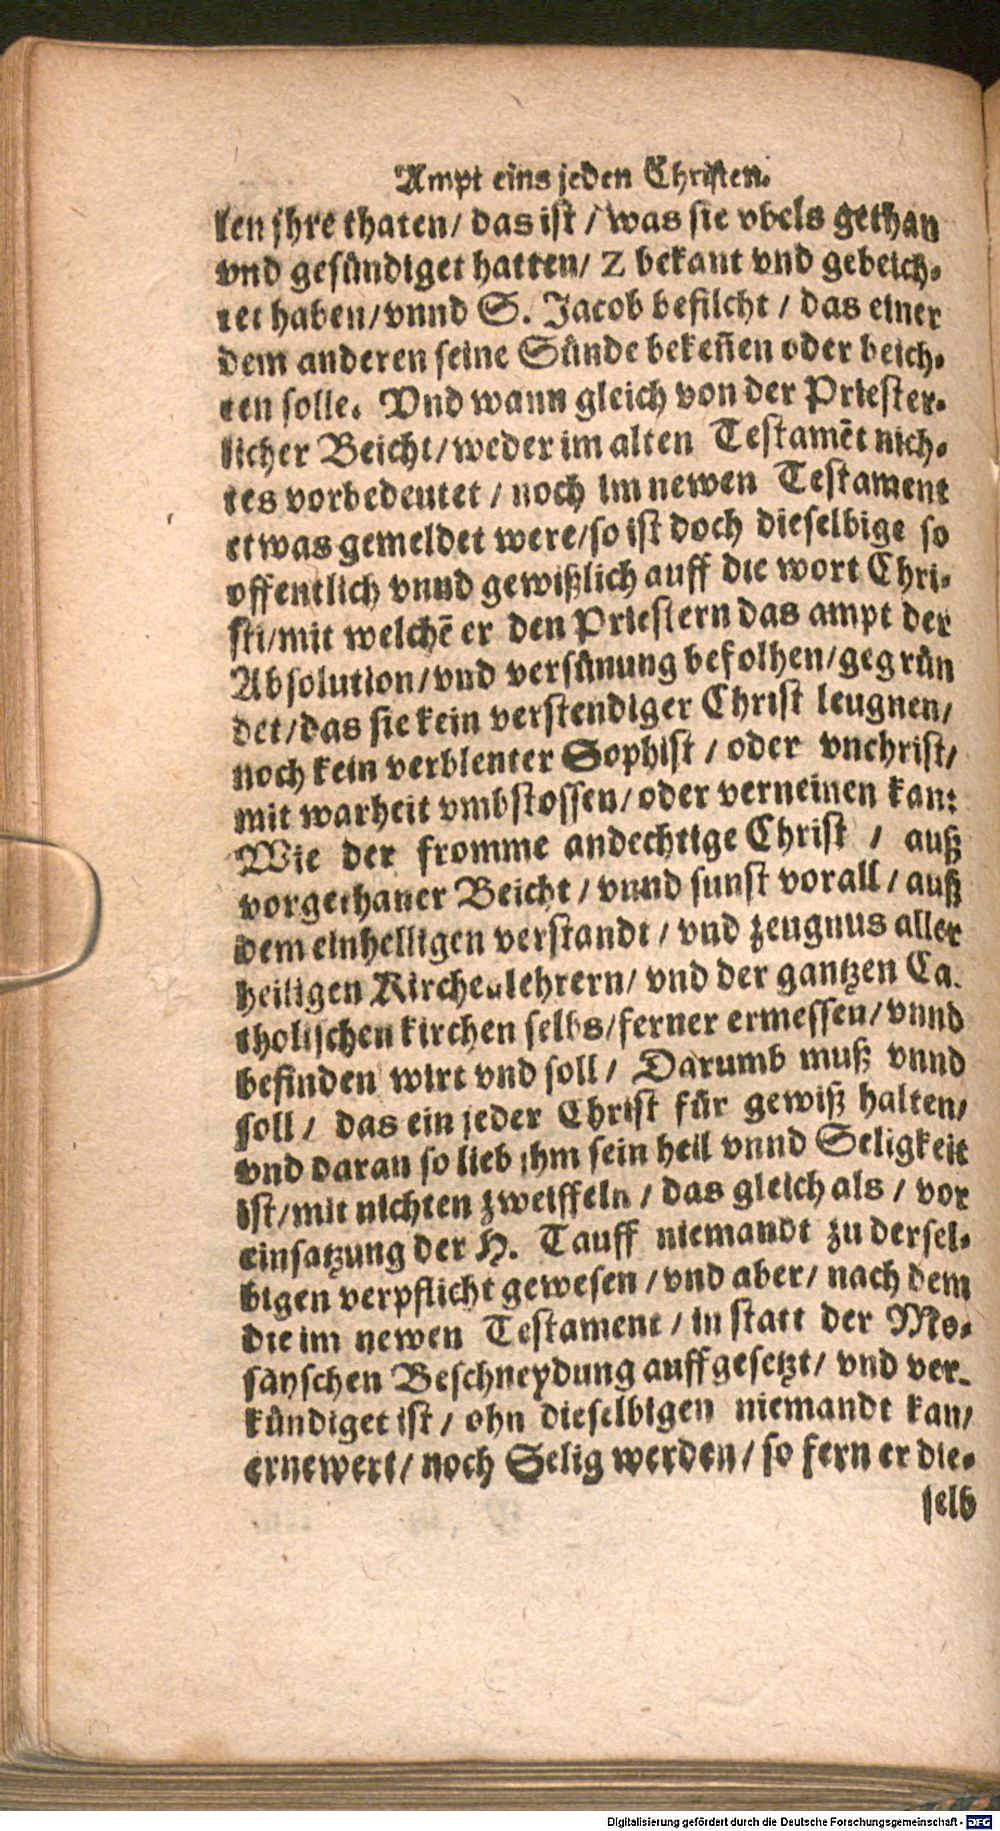 Ampt eins jeden Christen.
len jhre thaten/ das ist / was sie vbels gethan
vnd gesündiget hatten/ 2 bekant vnd gebeich-
tet haben/vnnd S. Jacob befilcht / das einer
dem anderen seine Sünde bekeñen oder beich-
ten solle. Vnd wann gleich von der Priester-
licher Beicht/weder im alten Testamēt nich-
tes vorbedeutet / noch im newen Testament
etwas gemeldet were/so ist doch dieselbige so
offentlich vnnd gewißlich auff die wort Chri-
sti/mit welchē er den Priestern das ampt der
Absolution/vnd versünung befolhen/gegrün
det/das sie kein verstendiger Christ leugnen/
noch kein verblenter Sophist / oder vnchrist/
mit warheit vmbstossen/oder verneinen kan:
Wie der fromme andechtige Christ / auß
vorgethaner Beicht / vnnd sunst vorall / auß
dem einhelligen verstandt / vnd zeugnus aller
heiligen Kirchenlehrern/ vnd der gantzen Ca-
tholischen kirchen selbs/ferner ermessen/vnnd
befinden wirt vnd soll / Darumb muß vnnd
soll / das ein jeder Christ für gewiß halten/
vnd daran so lieb jhm sein heil vnnd Seligkeit
ist/mit nichten zweiffeln / das gleich als / vor
einsatzung der H. Tauff niemandt zu dersel-
bigen verpflicht gewesen /vnd aber/ nach dem
die im newen Testament / in statt der Mo-
säyschen Beschneydung auffgesetzt/ vnd ver-
kündiget ist / ohn dieselbigen niemandt kan/
ernewert/ noch Selig werden/ so fern er die-
selb
Digitalisierung gefördert durch die Deutsche Forschungsgemeinschaft - DFG